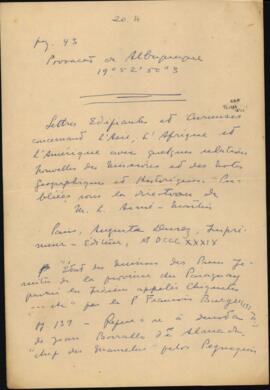 20.4
pg. 93
Povoação de Albuquerque
19° 52' 50" 3
Lettres Edifiantes et Curieuses
concernant l'Asie, l'Afrique et
l'Amérique avec quelques relations
nouvelles des missions et des notes
Geographiques et Historiques. Pu-
bliées sous la direction de
M. L. Aimé-Martin
Paris, Auguste Desrez, Impri-
meur - Editeur, M DCCC XXXIX
"Etat des missions des Pères Je-
suites de la province du Paraguay
parmi les Indiens appelés Chiquites
" par le P. François Burges (S.J.)
Pg 139 - Refere-se à
de Jean de Almada
"chef des Mamelus" pelos